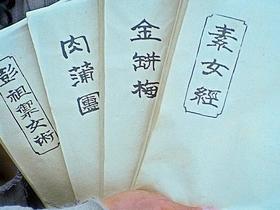 素女經
金缾梅
肉蒲團
彭祖禦女術